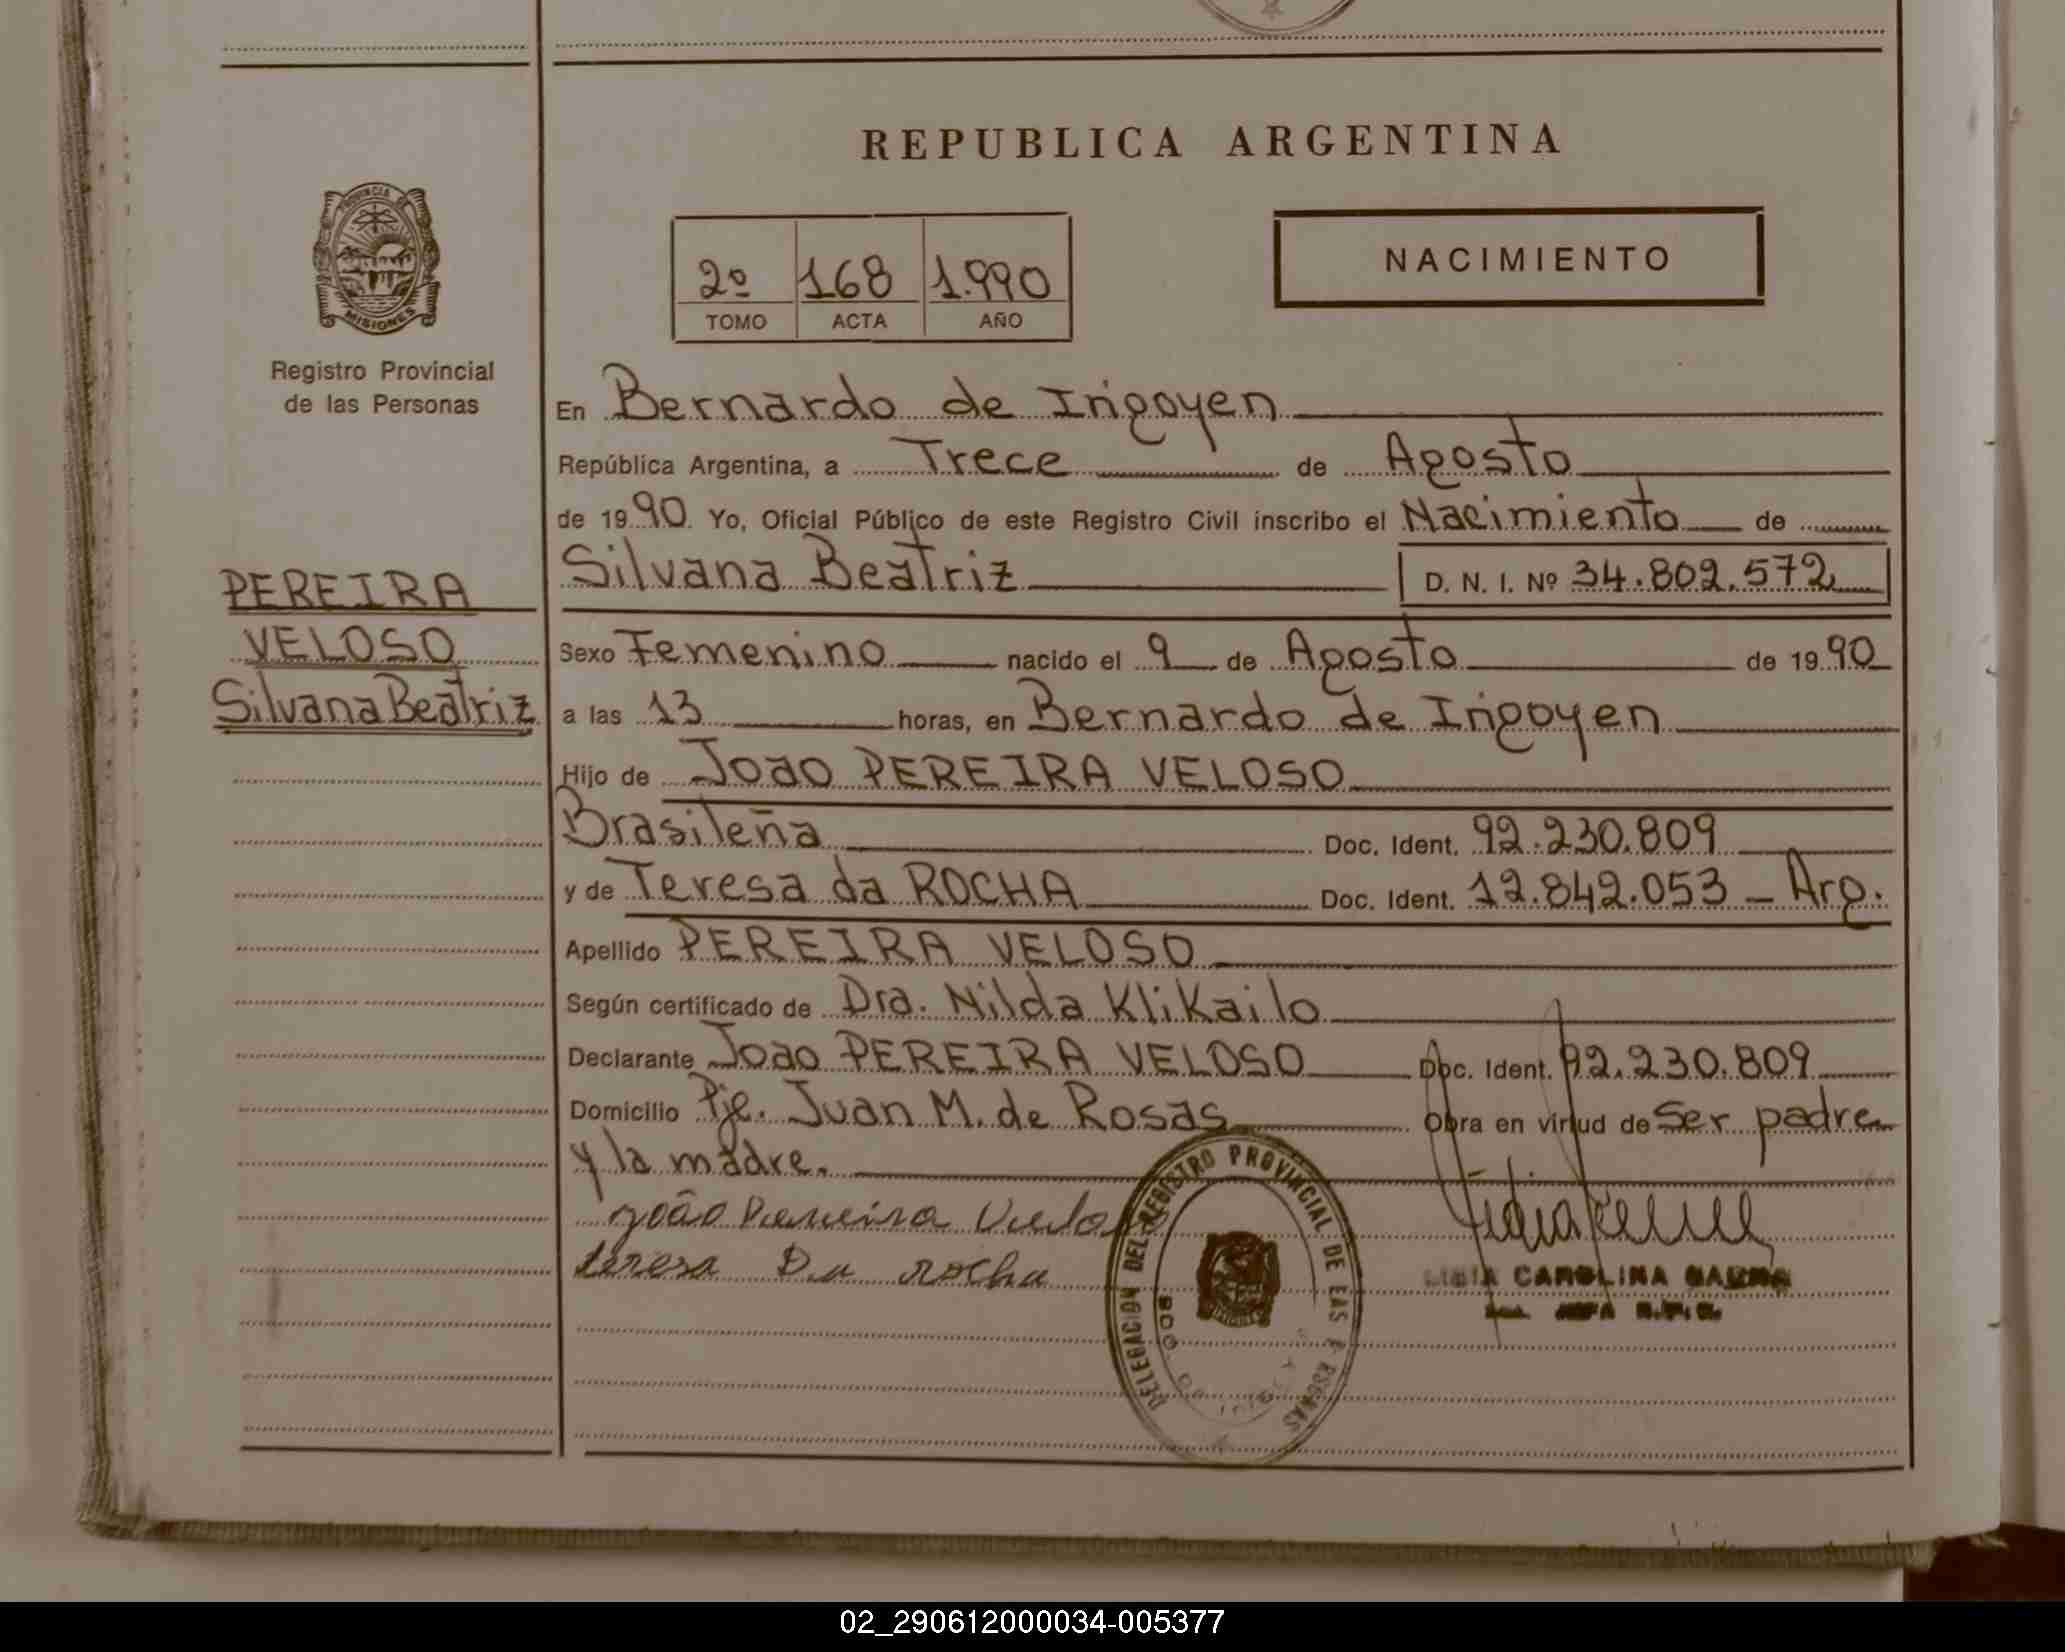 REPUBLICA ARGENTINA
PROVINCIA DE
MISIONES
Registro Provincial
de las Personas
2º 168 1.990
TOMO ACTA AÑO
NACIMIENTO
En Bernardo de Irigoyen
República Argentina, a Trece de Agosto
de 1990 Yo, Oficial Público de este Registro Civil inscribo el Nacimiento de
Silvana Beatriz D. N. I. Nº 34.802.572
PEREIRA
VELOSO
Silvana Beatriz
Sexo Femenino nacido el 9 de Agosto de 1990
a las 13 horas, en Bernardo de Irigoyen
Hijo de Joao PEREIRA VELOSO
Brasileña Doc. Ident. 92.230.809
y de Teresa da ROCHA Doc. Ident. 12.842.053 - Arg.
Apellido PEREIRA VELOSO
Según certificado de Dra. Nilda Klikailo
Declarante Joao PEREIRA VELOSO Doc. Ident. 92.230.809
Domicilio Pje. Juan M. de Rosas Obra en virtud de Ser padre
y la madre.
João Pereira Veloso
teresa Da rocha
DELEGACION DEL REGISTRO PROVINCIAL DE LAS PERSONAS
CAROLINA
02_290612000034-005377